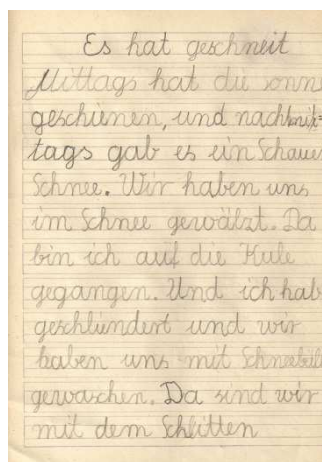 Es hat geschneit
Mittags hat die sonn
geschienen, und nachmit=
tags gab es ein Schauer
Schnee. Wir haben uns
im Schnee gewälzt. Da
bin ich auf die Kule
gegangen. Und ich hab
geschlundert und wir
haben uns mit Schneebäll
gewaschen. Da sind wir
mit dem Schlitten